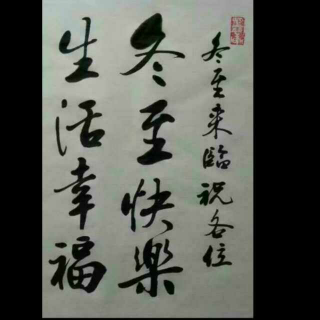 冬至来臨祝各位
冬至快樂
生活幸福